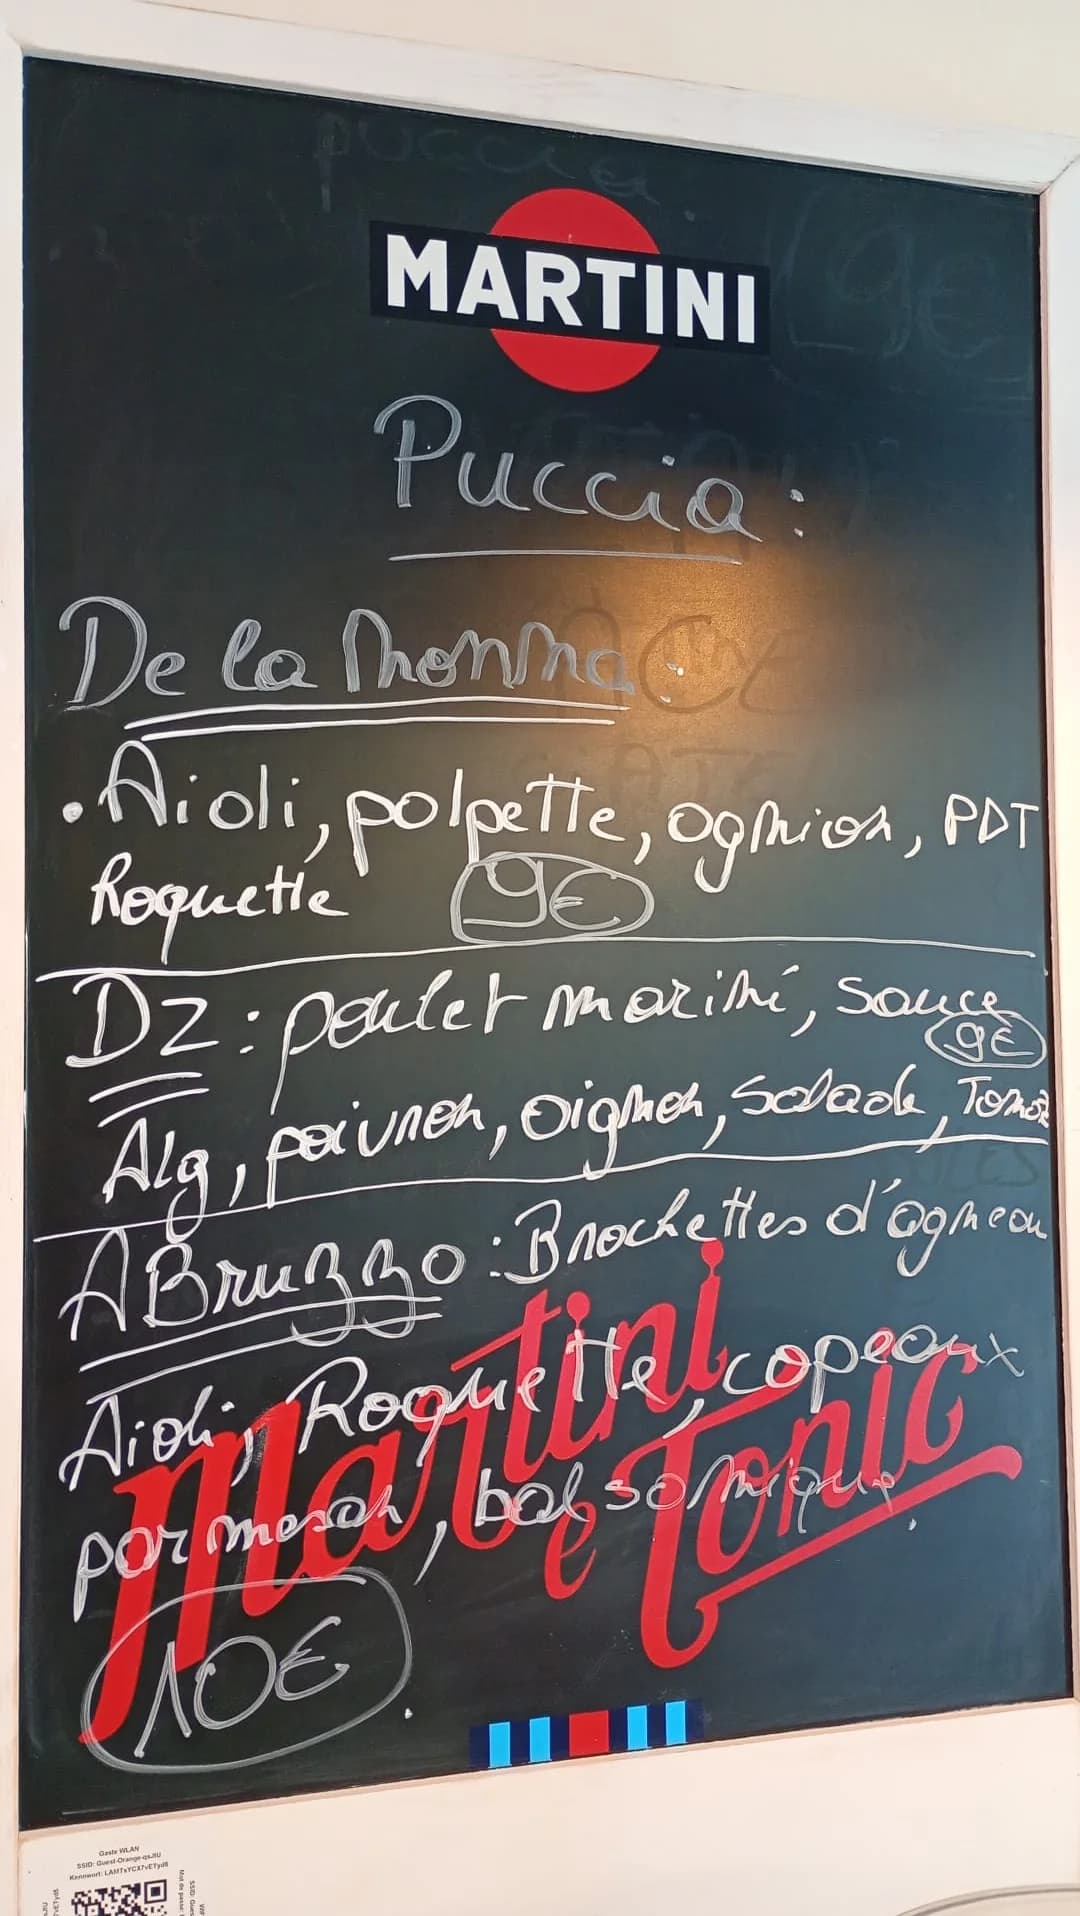 MARTINI
Puccia :
De la Monma :
• Aioli, polpette, ognion, PDT
Roquette 9€
DZ : poulet mariné, sauce
9€
Alg, poivron, oignon, salade, Tomat
ABruzzo : Brochettes d'agneau
Aioli, Roquette, copeaux
parmesan, balsamique.
Martini
e Tonic
10€.
Gaste WLAN
SSID: Guest-Orange-qsJIU
Kennwort: LAMTsYCX7vETyd5